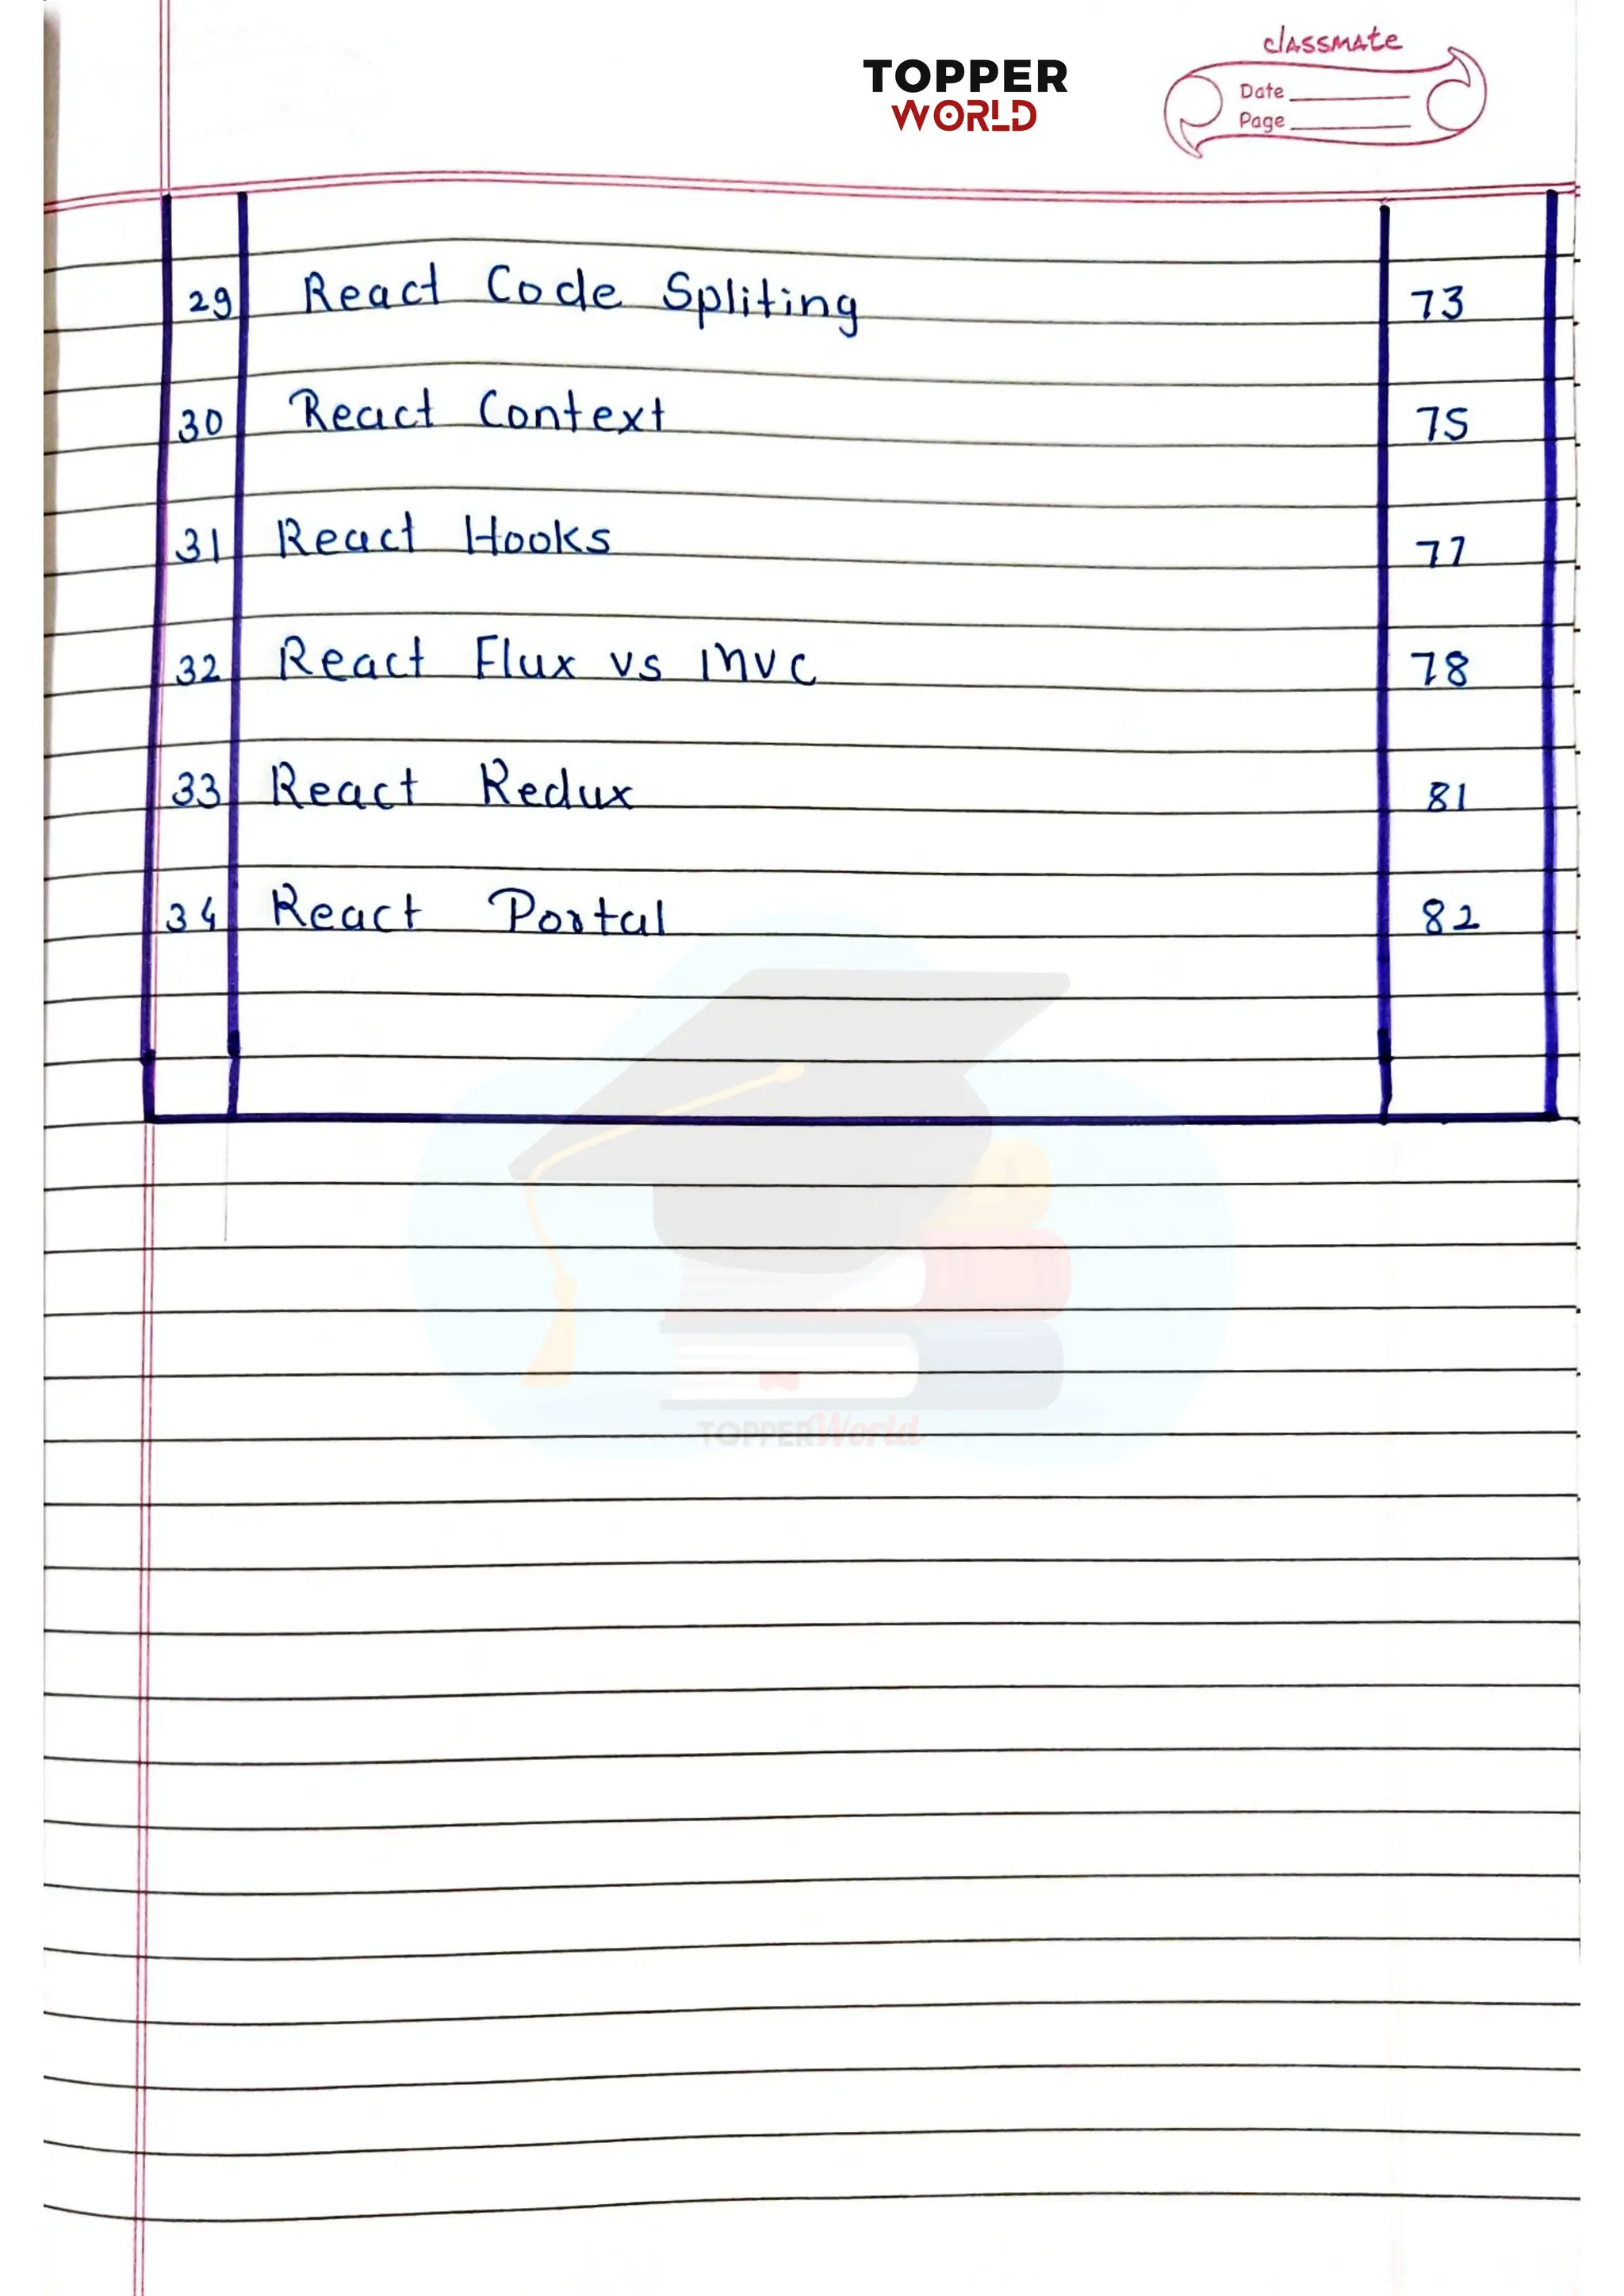 classmate
TOPPER
WORLD
Date
Page
29 React Code Spliting 73
30 React Context 75
31 React Hooks 77
32 React Flux vs MVC 78
33 React Redux 81
34 React Portal 82
TOPPERWorld